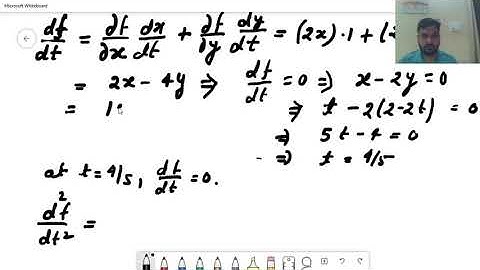 Microsoft Whiteboard
df/dt = ∂f/∂x dx/dt + ∂f/∂y dy/dt = (2x)·1 + (-2
= 2x - 4y ⇒ df/dt = 0 ⇒ x - 2y = 0
= 1 ⇒ t - 2(2-2t) = 0
⇒ 5t - 4 = 0
⇒ t = 4/5
at t = 4/5, df/dt = 0.
d²f/dt² =